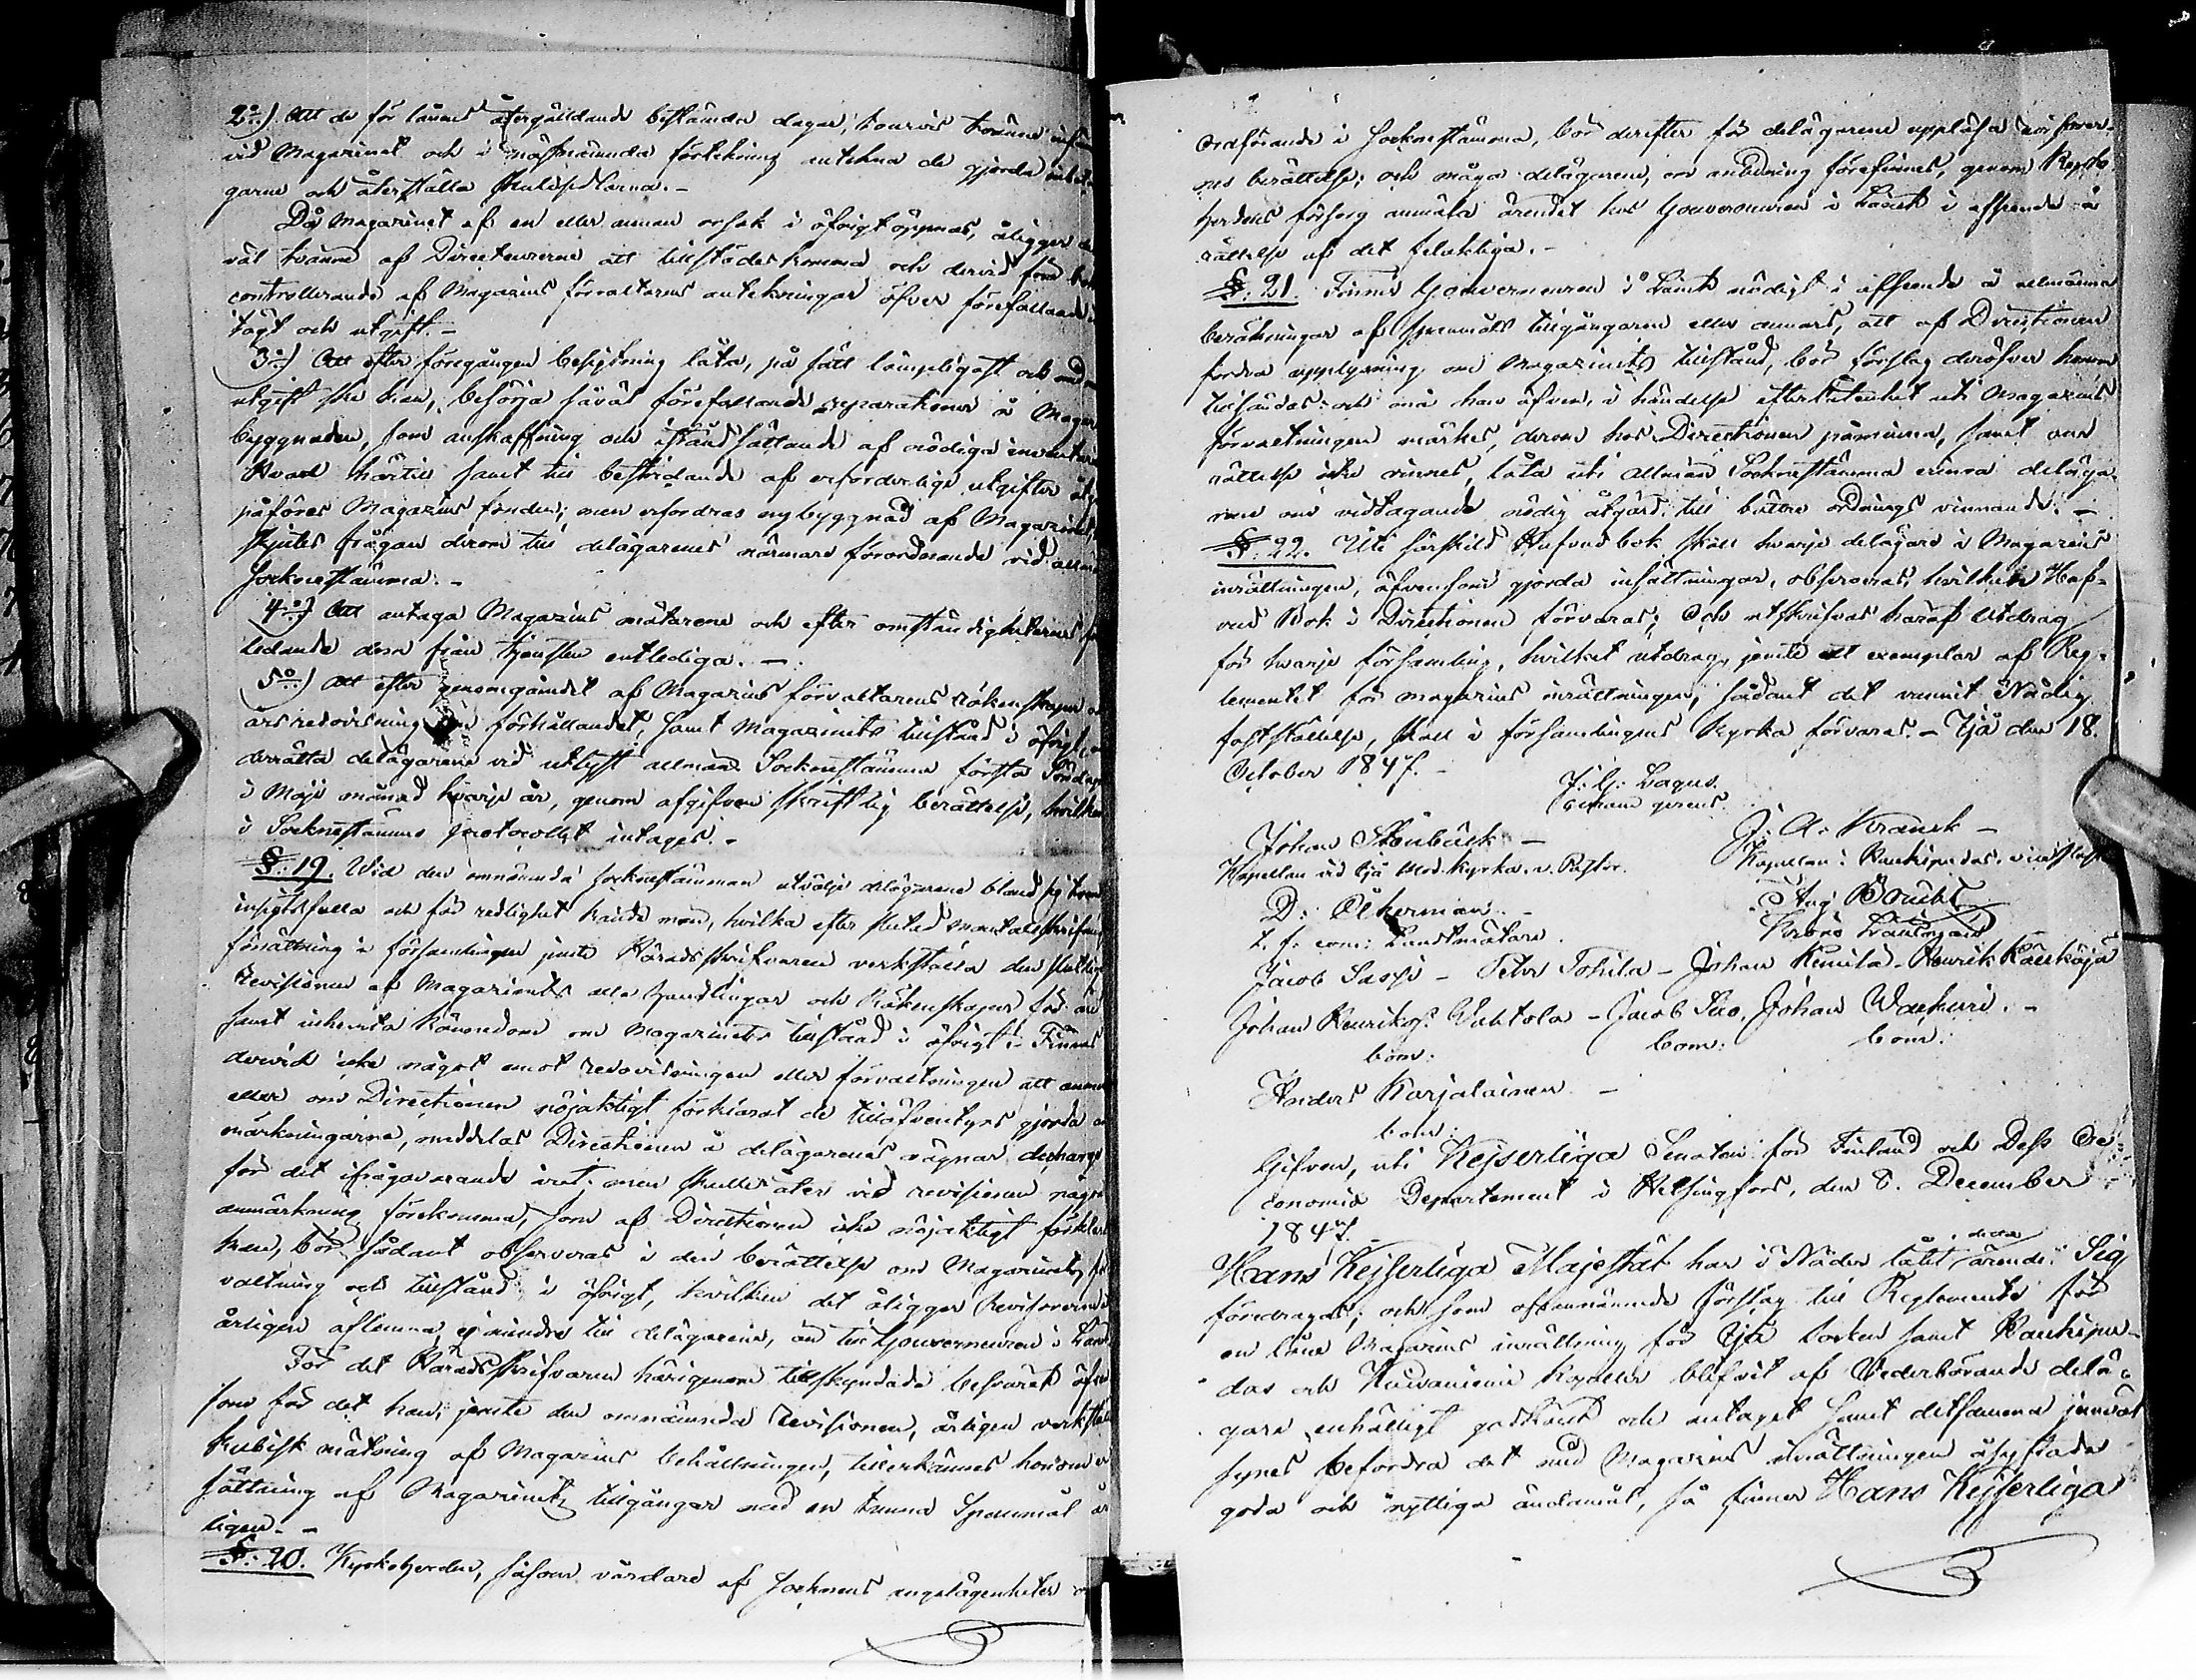 2:o) Att de för lånens återgäldande bestämda dagar, tourvis tvänne
vid Magazinet och i nästnämnda förtekning antekna de gjorda
garne och återställa skuldsedlarna. -
Då Magazinet af en eller annan orsak i öfrigt öppnas, åligger
väl tvänne af Directeurerne att tillstädeskomma och dervid föra
controllerande af Magazins förvaltarens antekningar öfver förefallande
tägt och utgift. -
3:o) Att efter föregången besigtning låta, på sätt lämpligast och
utgift ske kan, besörja såväl förefallande reparationer å
byggnaden, som anskaffning och iståndsättande af nödiga
Hvad härtill samt till bestridande af erforderliga utgifter
påföres Magazins fonden; men erfordras nybyggnad af Magazinet,
skjutes frågan derom till delägarenes närmare förordnande vid
Socknestämma. -
4:o) Att antaga Magazins mätarene och efter omständigheternes
ledande dem från tjensten entlediga. -
5:o) Att efter genomgåendet af Magazins förvaltarens räkenskaper
års redovisning förhållandet, samt Magazinets tillstånd i öfrigt,
derrätta delägarene vid utlyst allmän Sockenstämma första Söndagen
i Maji månad hvarje år, genom afgifven skriftlig berättelse, hvilken
i Socknestämmo protocollet intages. -
§: 19. Wid den omnämnda socknestämman utvälje delägarene bland sig
insigtsfulla och för redlighet kände män, hvilka efter slutad mantalsskrifnings
förrättning i församlingen jemte Häradsskrifvaren verkställa den slutliga
revisionen af Magazinets alla handlingar och Räkenskaper för
samt inhemta kännedom om Magazinets tillstånd i öfrigt. Finnes
dervid icke något emot redovisningen eller förvaltningen att
eller om Directionen nöjaktigt förklarat de tilläfventyrs gjorda
märkningarne, meddelas Directionen å delägarenes vägnar decharge
för det ifrågavarande året; men skulle åter vid revisionen någon
anmärkning förekomma, som af Directionen icke nöjaktigt
kan, bör sådant observeras i den berättelse om Magazinets
valtning och tillstånd i öfrigt, hvilken det åligger Revisorerne
årligen aflemna, ej mindre till delägarene, än till Gouverneuren i
För det Häradsskrifvaren härigenom tillskyndade besväret
som för det han, jemte den omnämnda revisionen, årligen
kubisk mätning af Magazins behållningen, tillerkännes honom
sättning af Magazinets tillgångar med en tunna Spannmål
ligen. -
§: 20. Kyrkoherden, såsom vårdare af Socknens angelägenheter
ordförande i Socknestämma, bör derefter för delägarene uppläsa
nes berättelse; och måga delägarene, om anledning förefinnes, genom Kyrko-
herdens försorg anmäla ärendet hos Gouverneuren i Länet i afseende å
rättelse af det felaktiga. -
§: 21. Finner Gouverneuren i Länet nödigt i afseende å allmänna
beräkningar af spannmåls tillgångarne eller annars, att af Directionen
fordra upplysning om Magazinets tillstånd, bör förslag deröfver honom
tillsändas: och må han äfven, i händelse efterlåtenhet uti Magazins
förvaltningen märkes, derom hos Directionen påminna, samt om
rättelse icke vinnes, låta uti allmän Socknestämma erinra deläga-
rene om vidtagande nödig åtgärd till bättre ordnings vinnande. -
§: 22. Uti särskild Hufvudbok skall hvarje delägare i Magazins
inrättningen, äfvensom gjorda insättningar, observeras; hvilken Huf-
vud Bok i Directionen förvaras; Och utskrifvas häraf Utdrag
för hvarje församling, hvilket utdrag, jemte ett exemplar af Reg-
lementet för magazins inrättningen, sådant det vunnit Nådig
fastställelse, skall i församlingens Kyrka förvaras. - Ijå den 18.
October 1847. -
J: G: Lagus.
Johan Stenbäck -
J: A: Kranck -
Kapellan vid Ijå Mod. Kyrka. v. Pastor.
D: Åkerman. -
t. f. com: Landtmätare.
Jacob - Petter Tohila - Johan Kemilä - Henrik
Johan Henriksson Wuhtola - Jacob Iso, Johan
bom: bom: bom:
Anders Karjalainen -
bom:
Gifven, uti Kejserliga Senaten för Finland och Dess Oe-
conomie Departement i Helsingfors, den 8. December
1847. -
Hans Kejserliga Majestät har i Nåder låtit detta ärende Sig
föredragas; och som ofvannämnde Förslag till Reglemente för
en Låne Magazins inrättning för Ijå Socken samt Haukipu-
das och Kuivaniemi Kapeller blifvit af Vederbörande delä-
gare enhälligt godkändt och antaget samt detsamma jemväl
synes befordra det med Magazins inrättningen åsyftade
goda och nyttiga ändamål, så finner Hans Kejserliga